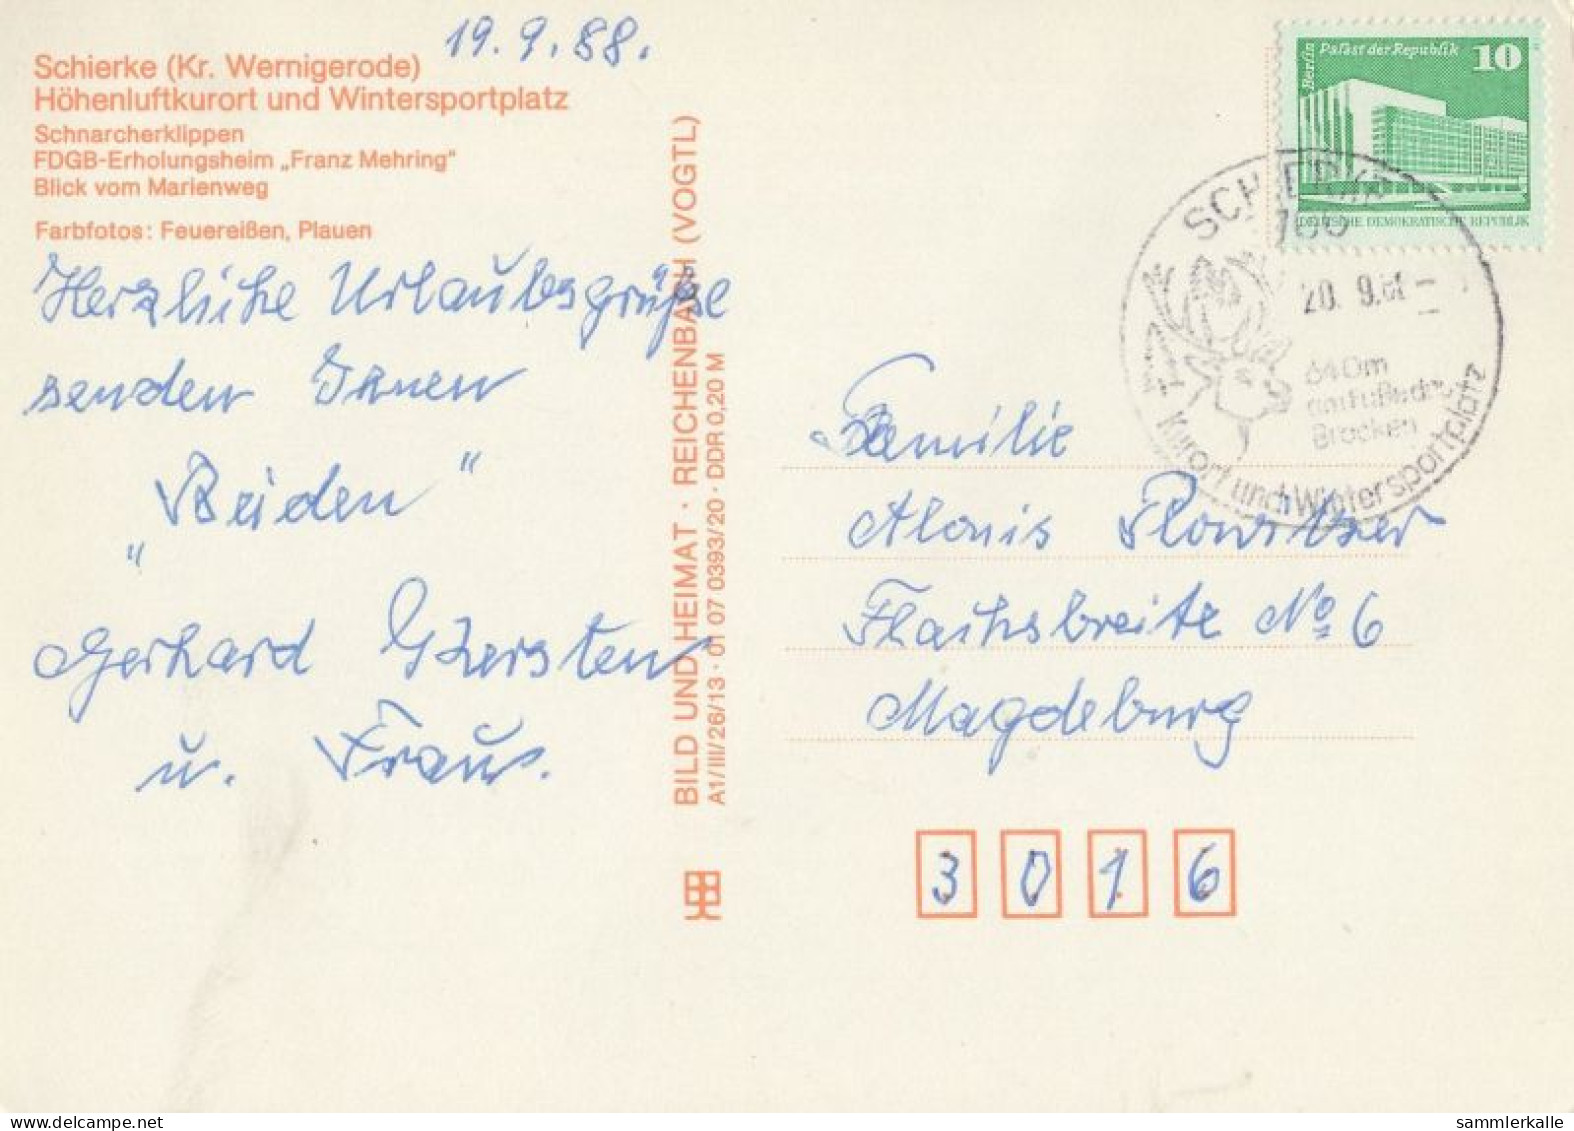 19.9.88.
Schierke (Kr. Wernigerode)
Höhenluftkurort und Wintersportplatz
Schnarcherklippen
FDGB-Erholungsheim „Franz Mehring"
Blick vom Marienweg
Farbfotos: Feuereißen, Plauen
Herzliche Urlaubsgrüße
senden Ihnen
„Beiden"
Gerhard
u. Frau.
BILD UND HEIMAT · REICHENBACH (VOGTL)
A1/III/26/13 · 01 07 0393/20 · DDR 0,20 M
Berlin Palast der Republik 10
DEUTSCHE DEMOKRATISCHE REPUBLIK
SCHIERKE
20. 9.
640m
am Fuße des
Brocken
Kurort und Wintersportplatz
Familie
Alonis
Flachsbreite No 6
Magdeburg
3 0 1 6
sammlerkalle